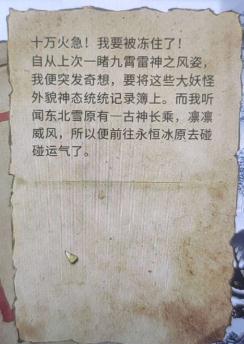 十万火急！我要被冻住了！
自从上次一睹九霄雷神之风姿，
我便突发奇想，要将这些大妖怪
外貌神态统统记录簿上。而我听
闻东北雪原有一古神长乘，凛凛
威风，所以便前往永恒冰原去碰
碰运气了。